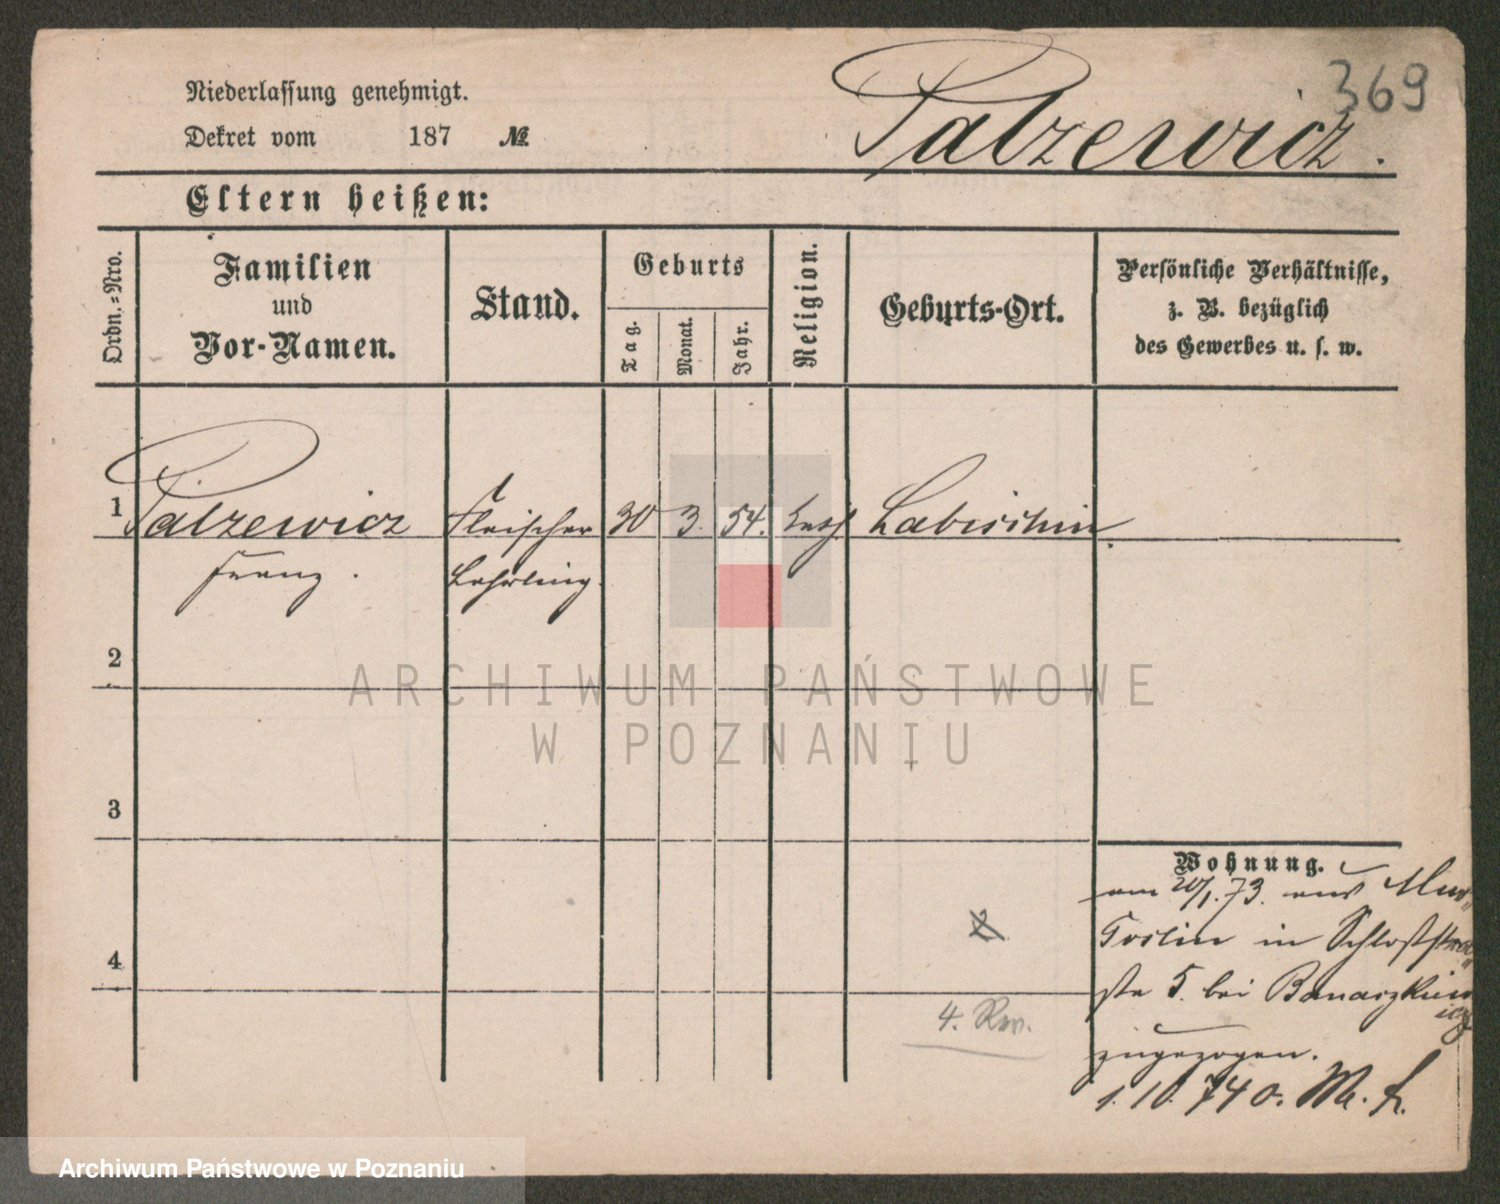 369
Niederlassung genehmigt.
Palzewicz.
Dekret vom 187 №
Eltern heißen:
Ordn.=Nro.
Familien
und
Vor-Namen.
Stand.
Geburts
Tag.
Monat.
Jahr.
Religion.
Geburts-Ort.
Persönliche Verhältnisse,
z. B. bezüglich
des Gewerbes u. s. w.
1 Palzewicz Fleischer 30 3. 54. kath Labischin
Franz. Lehrling.
2
3
4
Wohnung.
am 20/1. 73. aus Mur
Goslin in Schloßstra
ße 5. bei Banaszkiew
icz
zugezogen.
1. 10. 74 o.
4. Rev.
ARCHIWUM PAŃSTWOWE
W POZNANIU
Archiwum Państwowe w Poznaniu